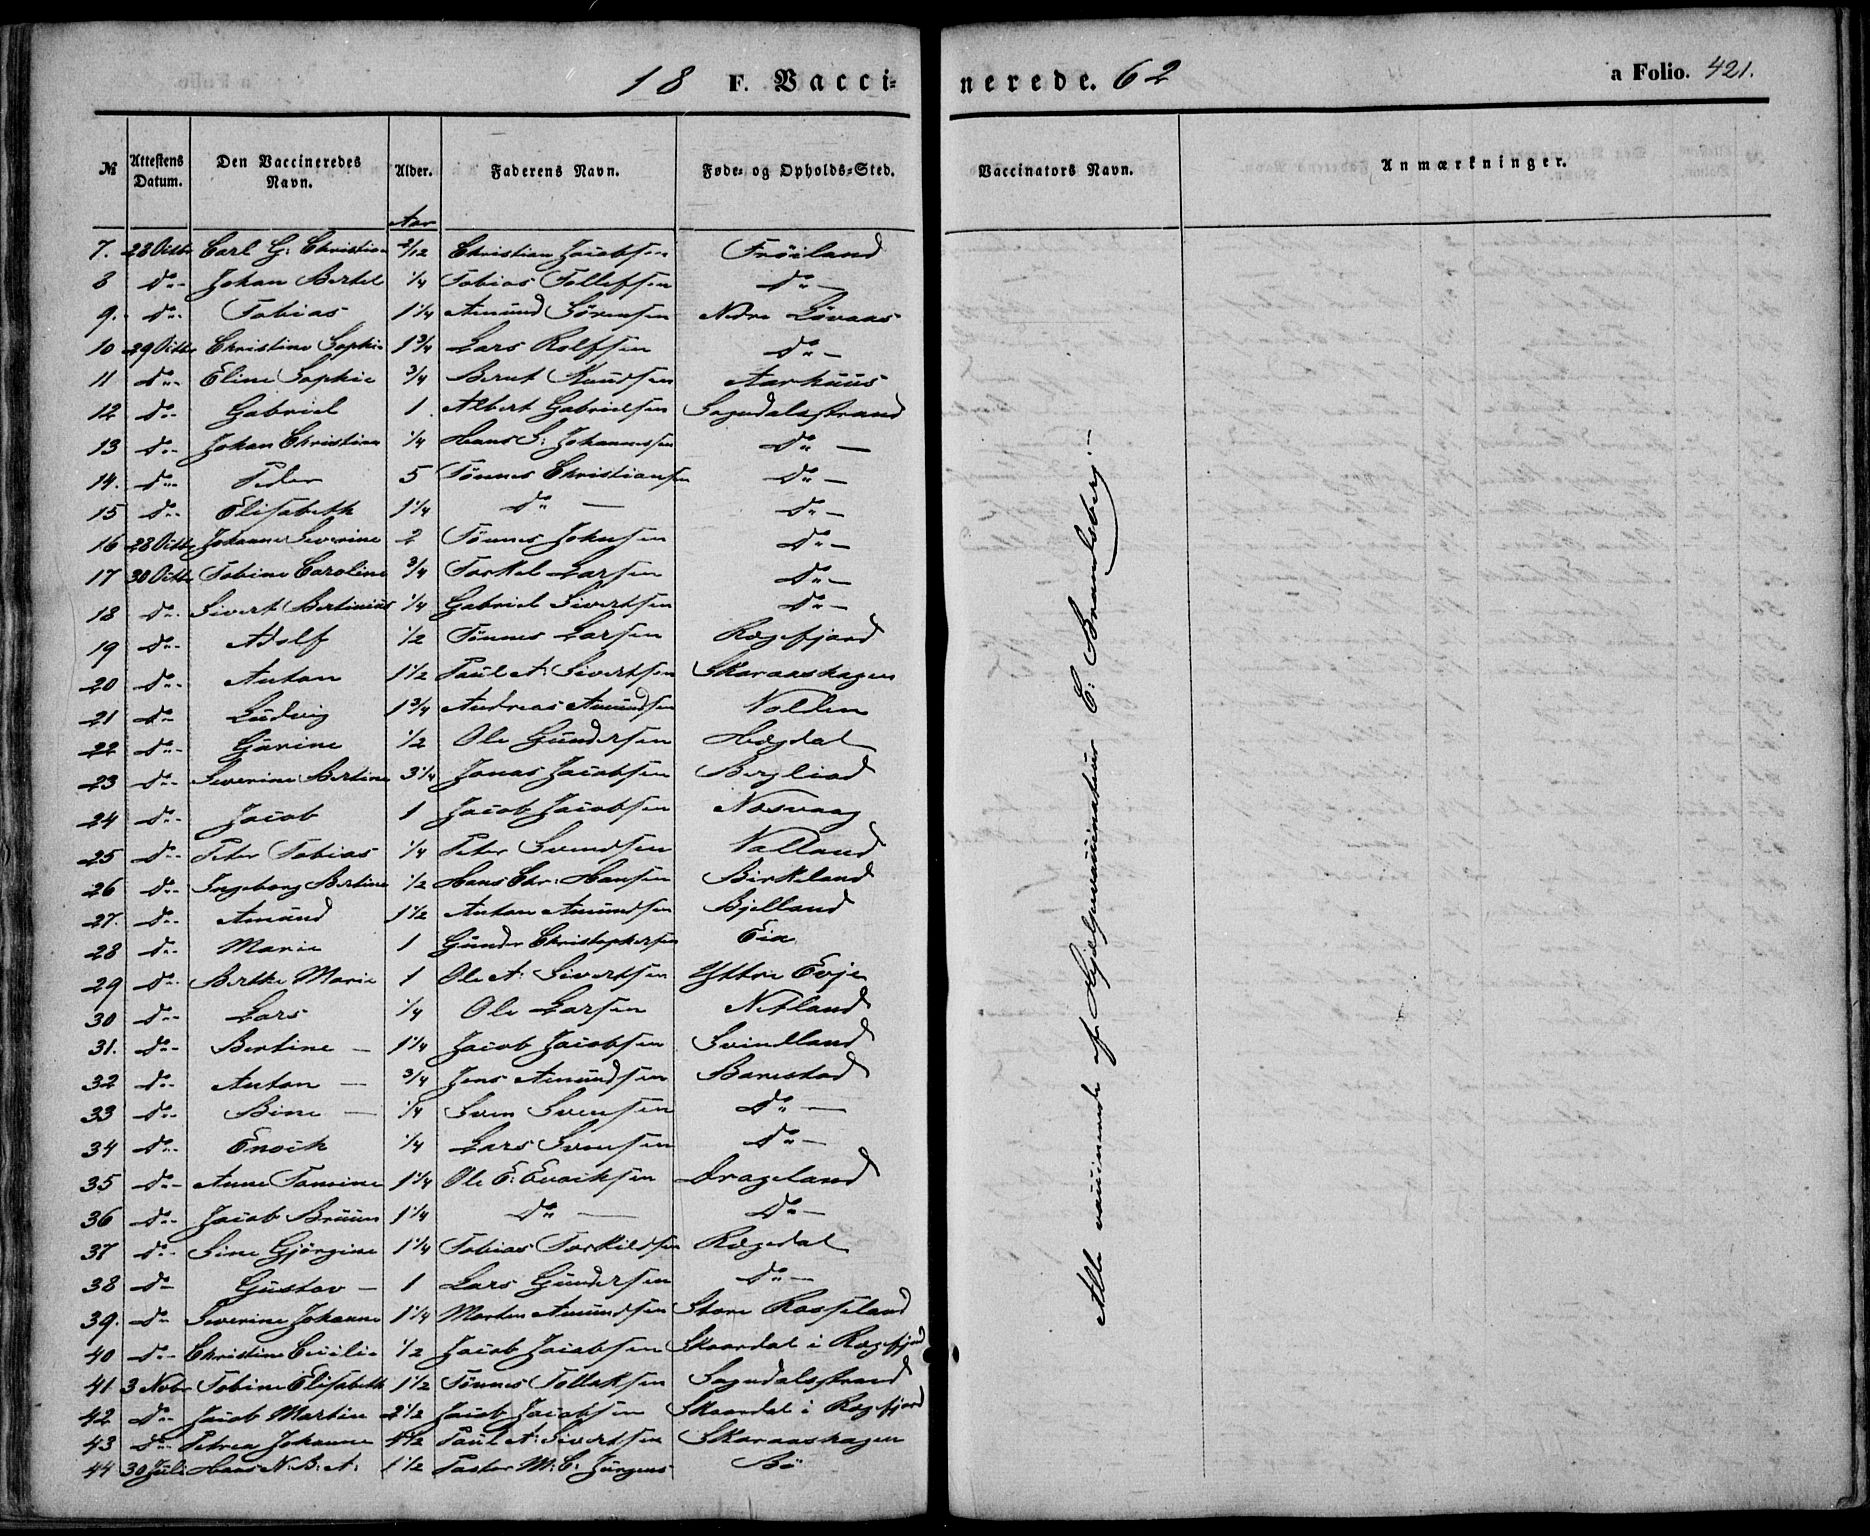 18 F. Vaccinerede. 62
a Folio. 421.
№ | Attestens Datum. | Den Vaccineredes Navn. | Alder. | Faderens Navn. | Føde- og Opholds-Sted. | Vaccinators Navn. | Anmærkninger.
Aar
7. 28 Octbr Carl G: Christian 2/12 Christian Jacobsen Frøiland
8 do Johan Bertel 1/4 Tobias Tollefsen do
9. do Tobias 1 1/4 Amund Sørensen Nedre Løvaas
10 29 Octbr Christine Sophie 1 3/4 Lars Rolfsen do
11 do Eline Sophie 3/4 Bernt Knudsen Aarhuus
12 do Gabriel 1 Albert Gabrielsen Sogndalsstrand
13 do Johan Christian 1/4 Hans S: Johannessen do
14. do Peder 5 Tönnes Christiansen do
15 do Elisabeth 1 1/4 do do
16 28 Octbr Johanne Severine 2 Tönnes Johnsen do
17 30 Octbr Tobine Caroline 3/4 Torkel Larsen do
18 do Sivert Bertinius 1/4 Gabriel Sivertsen do
19 do Adolf 1/2 Tönnes Larsen Rægefjord
20 do Anton 1 1/2 Paul A: Sivertsen Skaraashagen
21 do Ludvig 1 3/4 Andreas Amundsen Nolden
22 do Gurine 1/2 Ole Gundersen Hægdal
23 do Severine Bertine 3 1/4 Jonas Jacobsen Berglied
24 do Jacob 1 Jacob Jacobsen Nesvaag
25 do Peter Tobias 1/4 Peter Svendsen Valland
26 do Ingeborg Bertine 1/2 Hans Chr: Hansen Birkeland
27. do Amund 1 1/2 Anton Amundsen Bjelland
28 do Marie 1 Gunder Christophersen Eia
29 do Berthe Marie 1 Ole A: Sivertsen Yttre Evje
30 do Lars 1/4 Ole Larsen Netland
31. do Bertine 1 1/4 Jacob Jacobsen Svindland
32 do Anton 3/4 Jens Amundsen Barestad
33 do Bine 1/4 Sven Svensen do
34 do Enoch 1/4 Lars Svensen do
35 do Anne Tomine 1 1/4 Ole E: Evoiksen Drageland
36 do Jacob Bruun 1 1/4 do do
37 do Sine Gjörgine 1 1/4 Tobias Torkildsen Rægedal
38 do Gustav 1 Lars Gundersen do
39. do Severine Johanne 1 1/4 Morten Amundsen Store Rosseland
40 do Christine Cecilie 1/2 Jacob Jacobsen Skaardal i Rægefjord
41 3 Novbr Tobine Elisabeth 1 1/2 Tönnes Tollaksen Sogndalsstrand
42 do Jacob Martin 2 1/2 Jacob Jacobsen Skaardal i Rægefjord
43 do Petrea Johanne 4 1/2 Paul A: Sivertsen Skaraashagen
44 30 Juli Hans N: B: A: 1 1/2 Pastor M: C: Jürgens Bö
Alle vaccinerede af Hjelpevaccinateur C: Brandsberg.